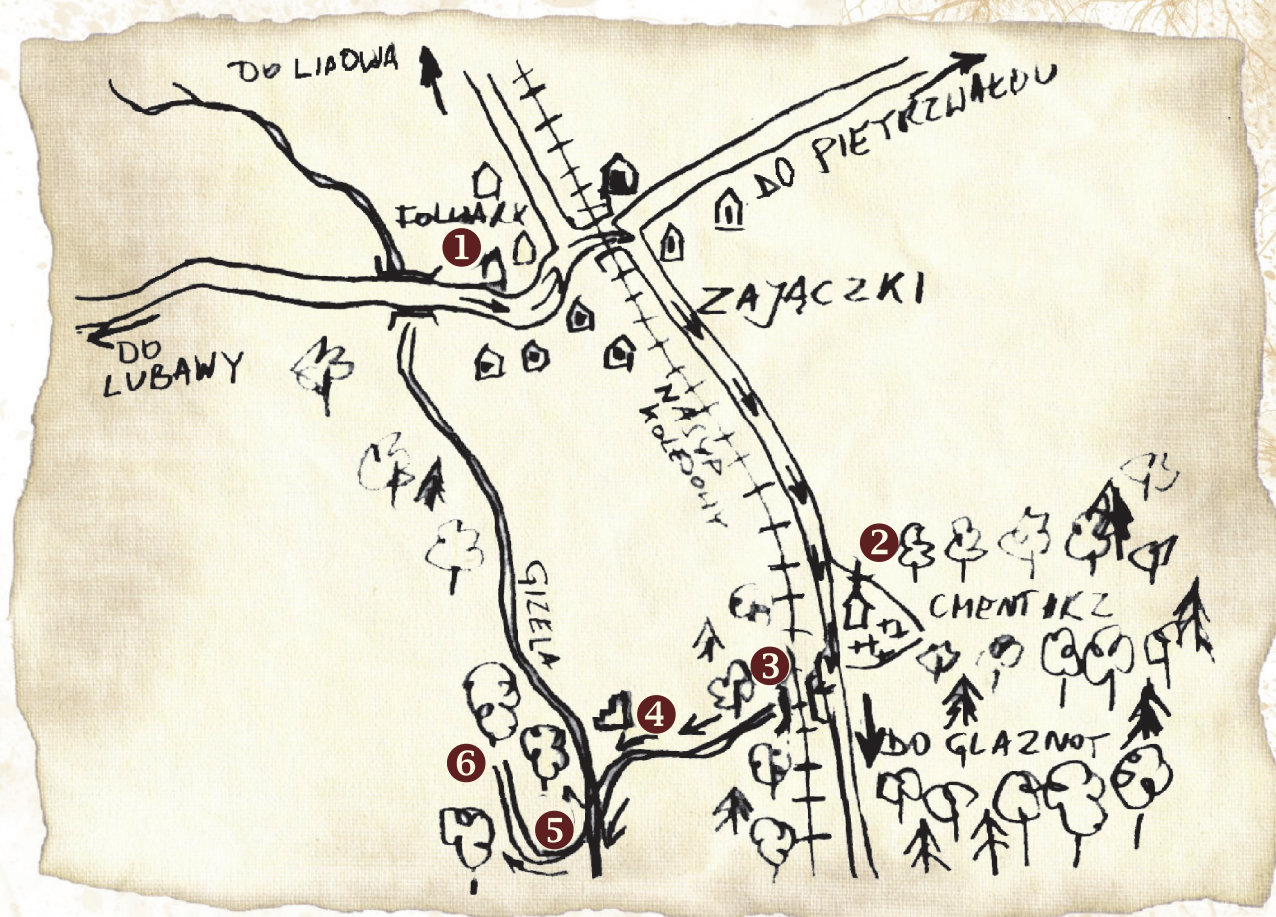 DO LIPOWA
DO PIETRZWAŁDU
FOLWARK
1
ZAJĄCZKI
DO
LUBAWY
NASYP
KOLEJOWY
2
CMENTARZ
GIZELA
3
4
DO GLAZNOT
6
5